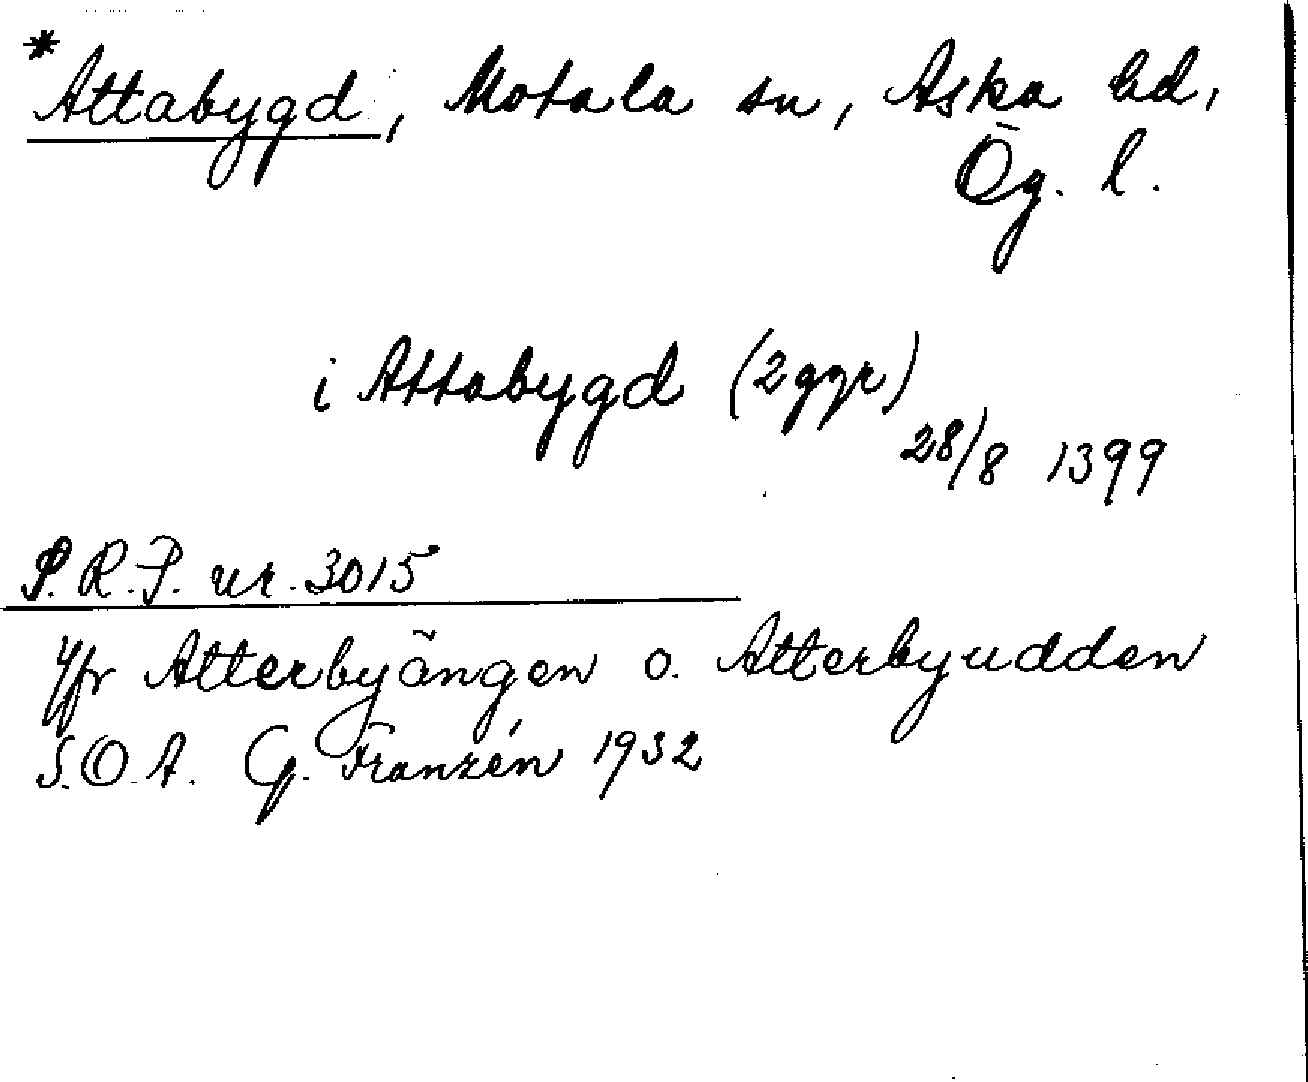 *Attabygd, Motala sn, Aska hd,
Ög. l.
i Attabygd (2 ggr)
28/8 1399
P.R.P. nr. 3015
Jfr Atterbyängen o. Atterbyudden
S.O.A. G. Franzén 1932